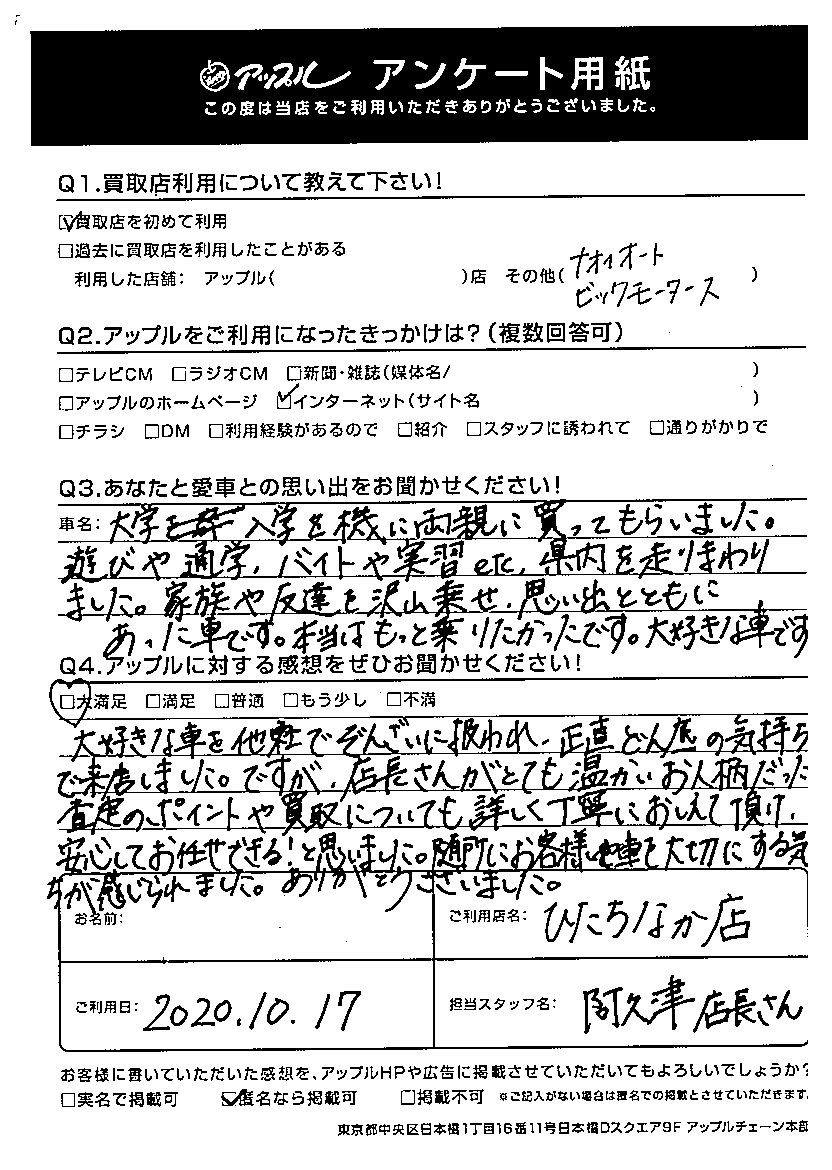 アップル アンケート用紙
この度は当店をご利用いただきありがとうございました。
Q1.買取店利用について教えて下さい!
☑買取店を初めて利用
□過去に買取店を利用したことがある
利用した店舗: アップル( )店 その他( ナオイオート
ビックモータース )
Q2.アップルをご利用になったきっかけは?(複数回答可)
□テレビCM □ラジオCM □新聞・雑誌(媒体名/ )
□アップルのホームページ ☑インターネット(サイト名 )
□チラシ □DM □利用経験があるので □紹介 □スタッフに誘われて □通りがかりで
Q3.あなたと愛車との思い出をお聞かせください!
車名: 大学を 入学を機に両親に買ってもらいました。
遊びや通学、バイトや実習etc、県内を走りまわり
ました。家族や友達を沢山乗せ、思い出とともに
あった車です。本当はもっと乗りたかったです。大好きな車です
Q4.アップルに対する感想をぜひお聞かせください!
□大満足 □満足 □普通 □もう少し □不満
大好きな車を他社でぞんざいに扱われ、正直どん底の気持ち
で来店しました。ですが、店長さんがとても温かいお人柄だった
査定のポイントや買取についても詳しく丁寧におしえて頂け、
安心してお任せできる!と思いました。随所にお客様 車を大切にする気
ちが感じられました。ありがとうございました。
お名前:
ご利用店名: ひたちなか店
ご利用日: 2020.10.17
担当スタッフ名: 阿久津店長さん
お客様に書いていただいた感想を、アップルHPや広告に掲載させていただいてもよろしいでしょうか?
□実名で掲載可 ☑匿名なら掲載可 □掲載不可 ※ご記入がない場合は匿名での掲載とさせていただきます。
東京都中央区日本橋1丁目16番11号日本橋Dスクエア9F アップルチェーン本部